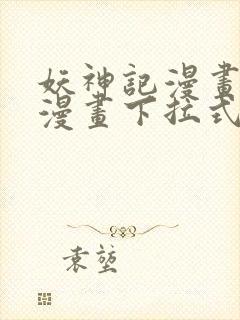 妖神記漫畫
漫畫下拉式
袁堃